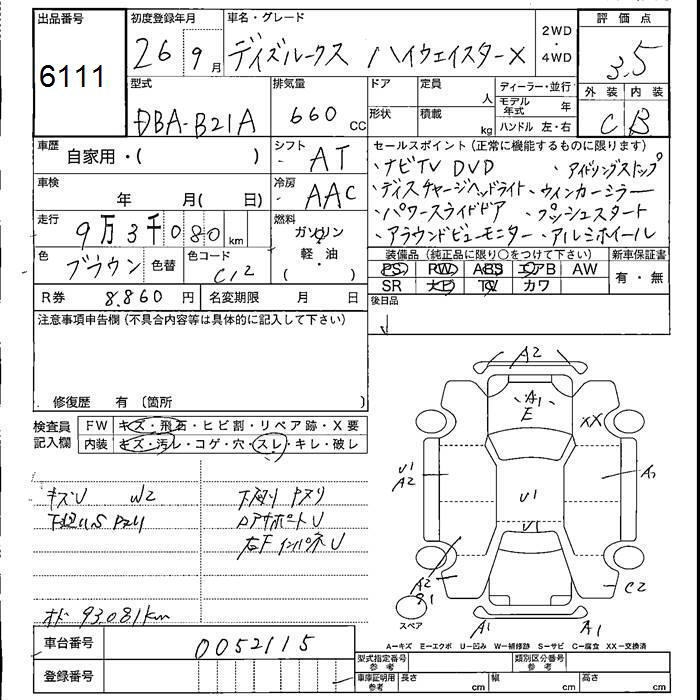 出品番号
6111
初度登録年月
26 9月
車名・グレード
デイズルークス ハイウェイスターX
2WD
・
4WD
評価点
3.5
外装 内装
C B
型式
DBA-B21A
排気量
660 cc
ドア
形状
定員 人
積載 kg
ディーラー・並行
モデル年式 年
ハンドル 左・右
車歴 自家用・( )
シフト AT
セールスポイント(正常に機能するものに限ります)
・ナビTV DVD ・アイドリングストップ
・ディスチャージヘッドライト ・ウィンカーミラー
・パワースライドドア ・プッシュスタート
・アラウンドビューモニター ・アルミホイール
車検 年 月( 日)
冷房 AAC
走行 9万3千080km
燃料 ガソリン
軽・油
( )
色 ブラウン 色替
色コード
装備品(純正品に限り○をつけて下さい)
PS PW ABS エアB AW
SR ナビ TV カワ
新車保証書
有・無
R券 8,860円
名変期限 月 日
後日品
注意事項申告欄(不具合内容等は具体的に記入して下さい)
修復歴 有(箇所 )
検査員記入欄
FW キズ・飛石・ヒビ割・リペア跡・X要
内装 キズ・汚レ・コゲ・穴・スレ・キレ・破レ
キズU W2
下廻りサビ
ドアサポートU
左F インパネU
オド 93.081km
A2
A1
E
XX
U1
A2
A1
U1
U1
A2
C2
A1
A1
スペア
A-キズ E-エクボ U-凹み W-補修跡 S-サビ C-腐食 XX-交換済
車台番号 0052115
登録番号
型式指定番号
参考
類別区分番号
参考
車庫証明用
参考
長さ cm 幅 cm 高さ cm